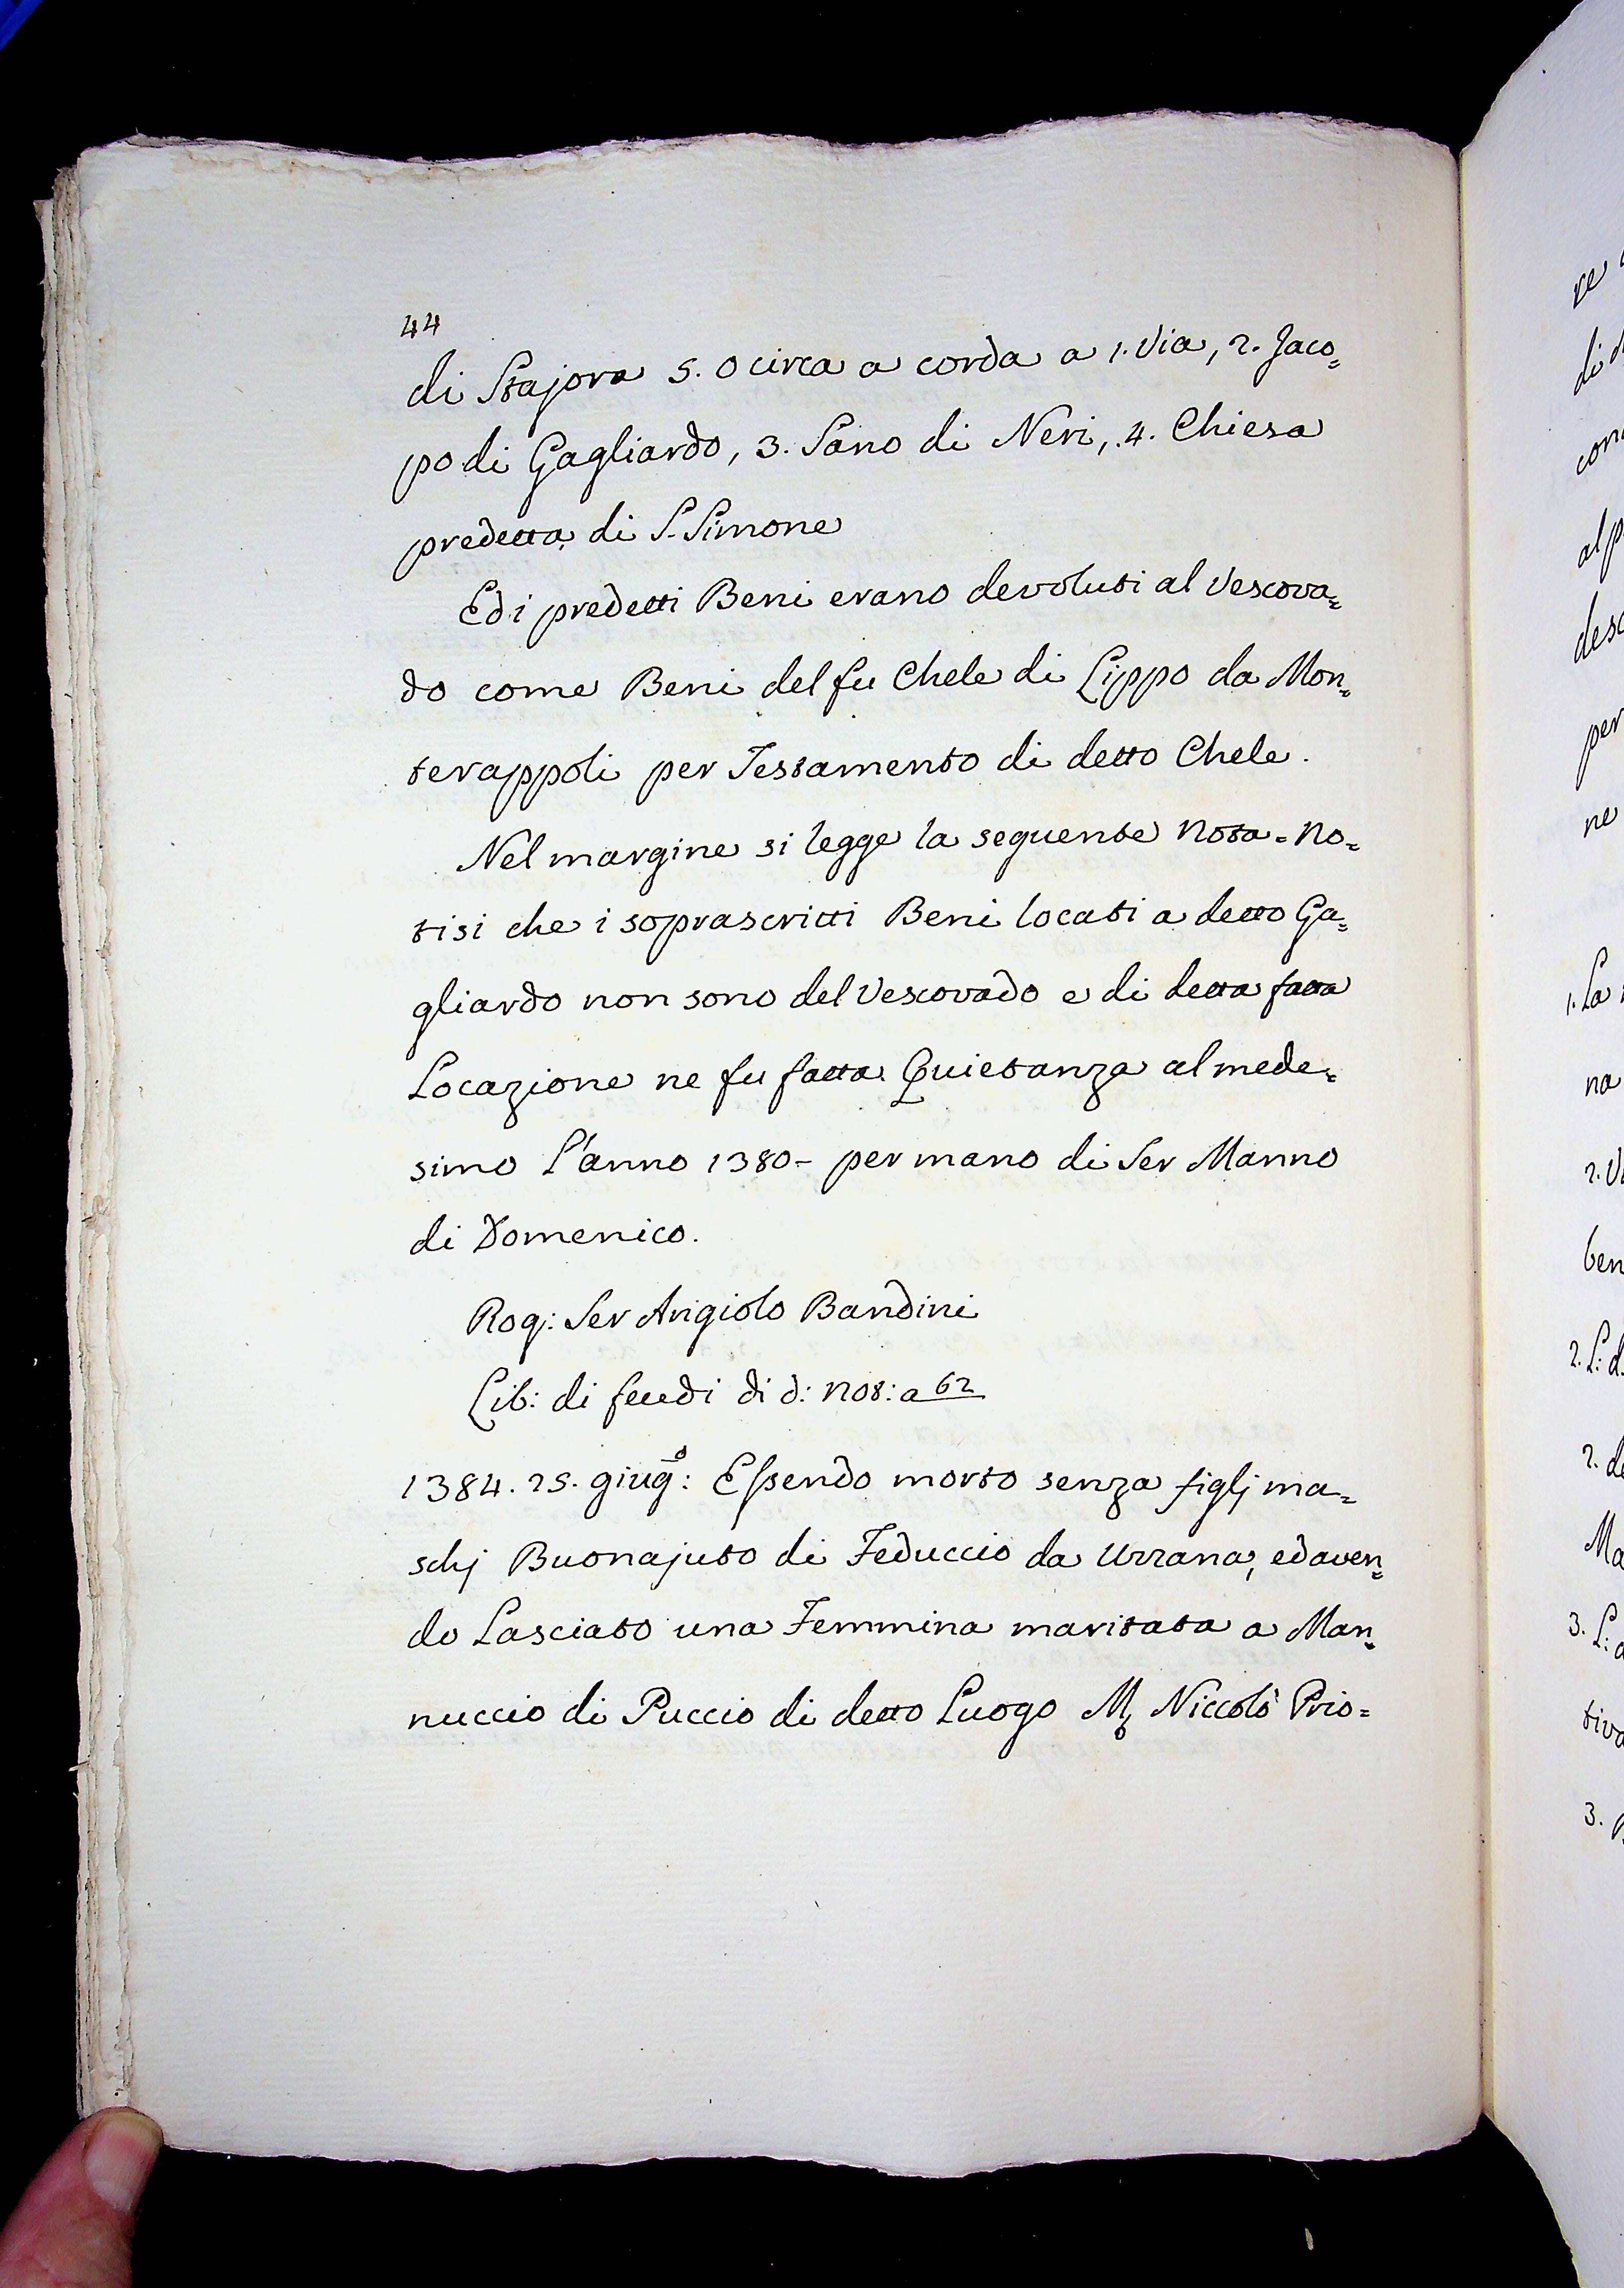 44
di Stajora 5. o circa a corda a 1. Via, 2. Jaco=
po di Gagliardo, 3. Sano di Neri, 4. Chiesa
predetta di S. Simone
Ed i predetti Beni erano devoluti al Vescova=
do come Beni del fu Chele di Lippo da Mon=
terappoli per Testamento di detto Chele.
Nel margine si legge la seguente Nota = No=
tisi che i soprascritti Beni locati a detto Ga=
gliardo non sono del Vescovado e di detta fatta
Locazione ne fu fatta Quietanza al mede=
simo L'anno 1380 - per mano di Ser Manno
di Domenico.
Rog: Ser Angiolo Bandini
Lib: di feudi di d: Not: a 62
1384. 25. giug.º: Essendo morto senza figlj ma=
schj Buonajuto di Feduccio da Uzzana, ed aven=
do Lasciato una Femmina maritata a Man=
nuccio di Puccio di detto Luogo M. Niccolò Prio=
re
di
con
al p
desc
per
ne
1. La
na
2. V
ben
2. L: d.
2. de
Ma
3. L: a
tiva
3.